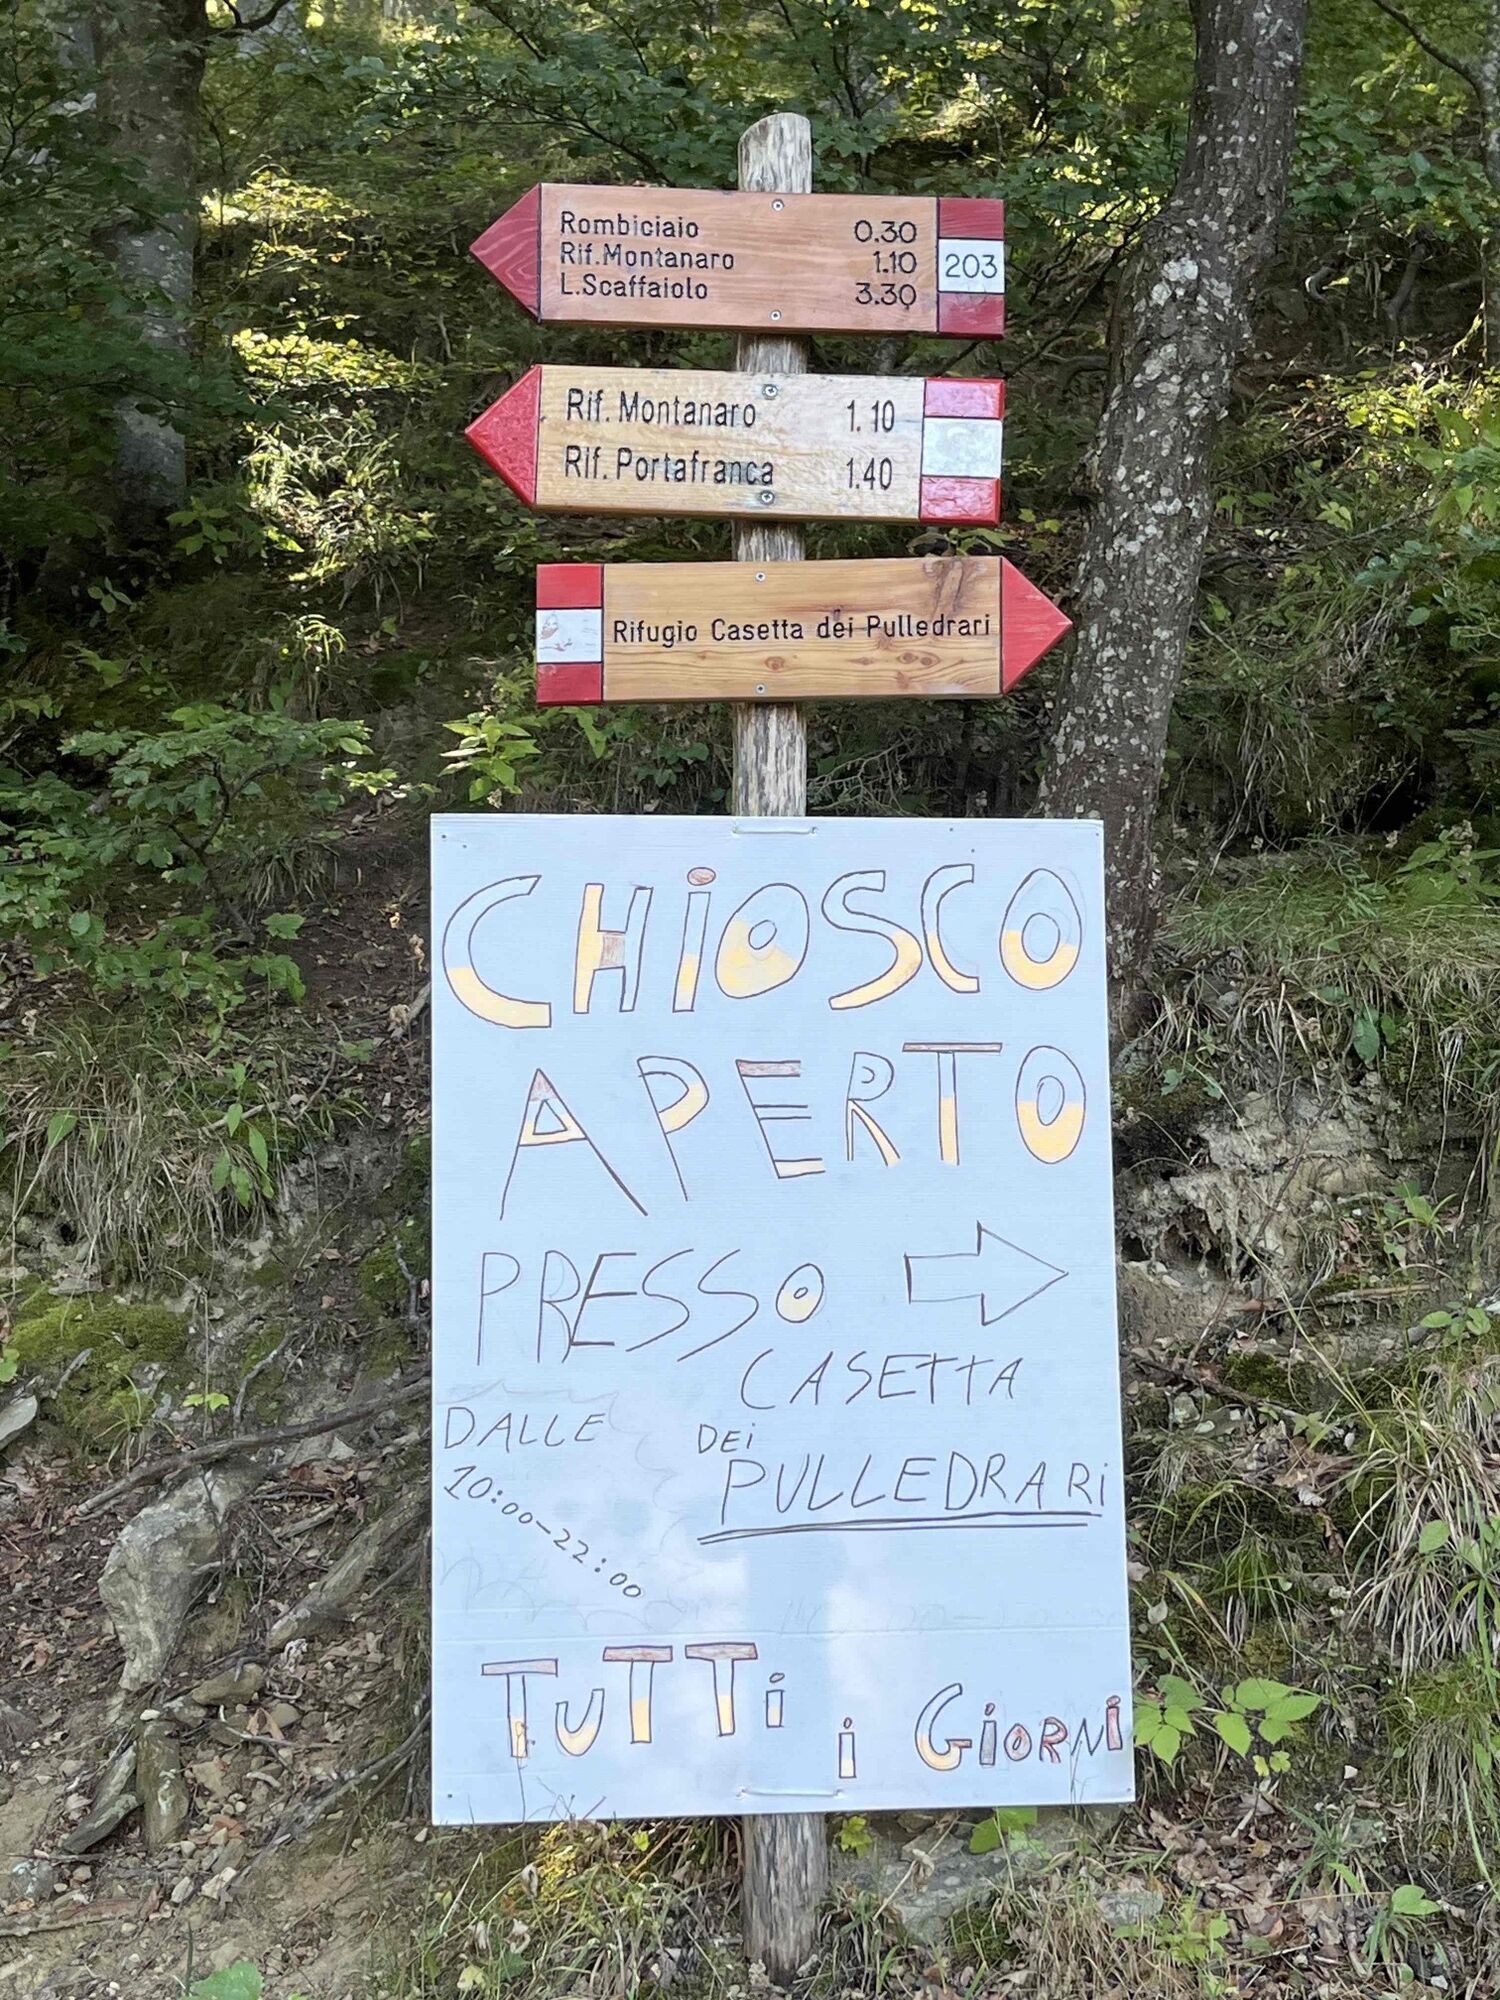 Rombiciaio 0.30
Rif.Montanaro 1.10
L.Scaffaiolo 3.30
203
Rif. Montanaro 1.10
Rif. Portafranca 1.40
Rifugio Casetta dei Pulledrari
CHiOSCO
APERTO
PRESSO
CASETTA
DEi
PULLEDRARi
DALLE
10:00-22:00
TUTTi i GiORNi